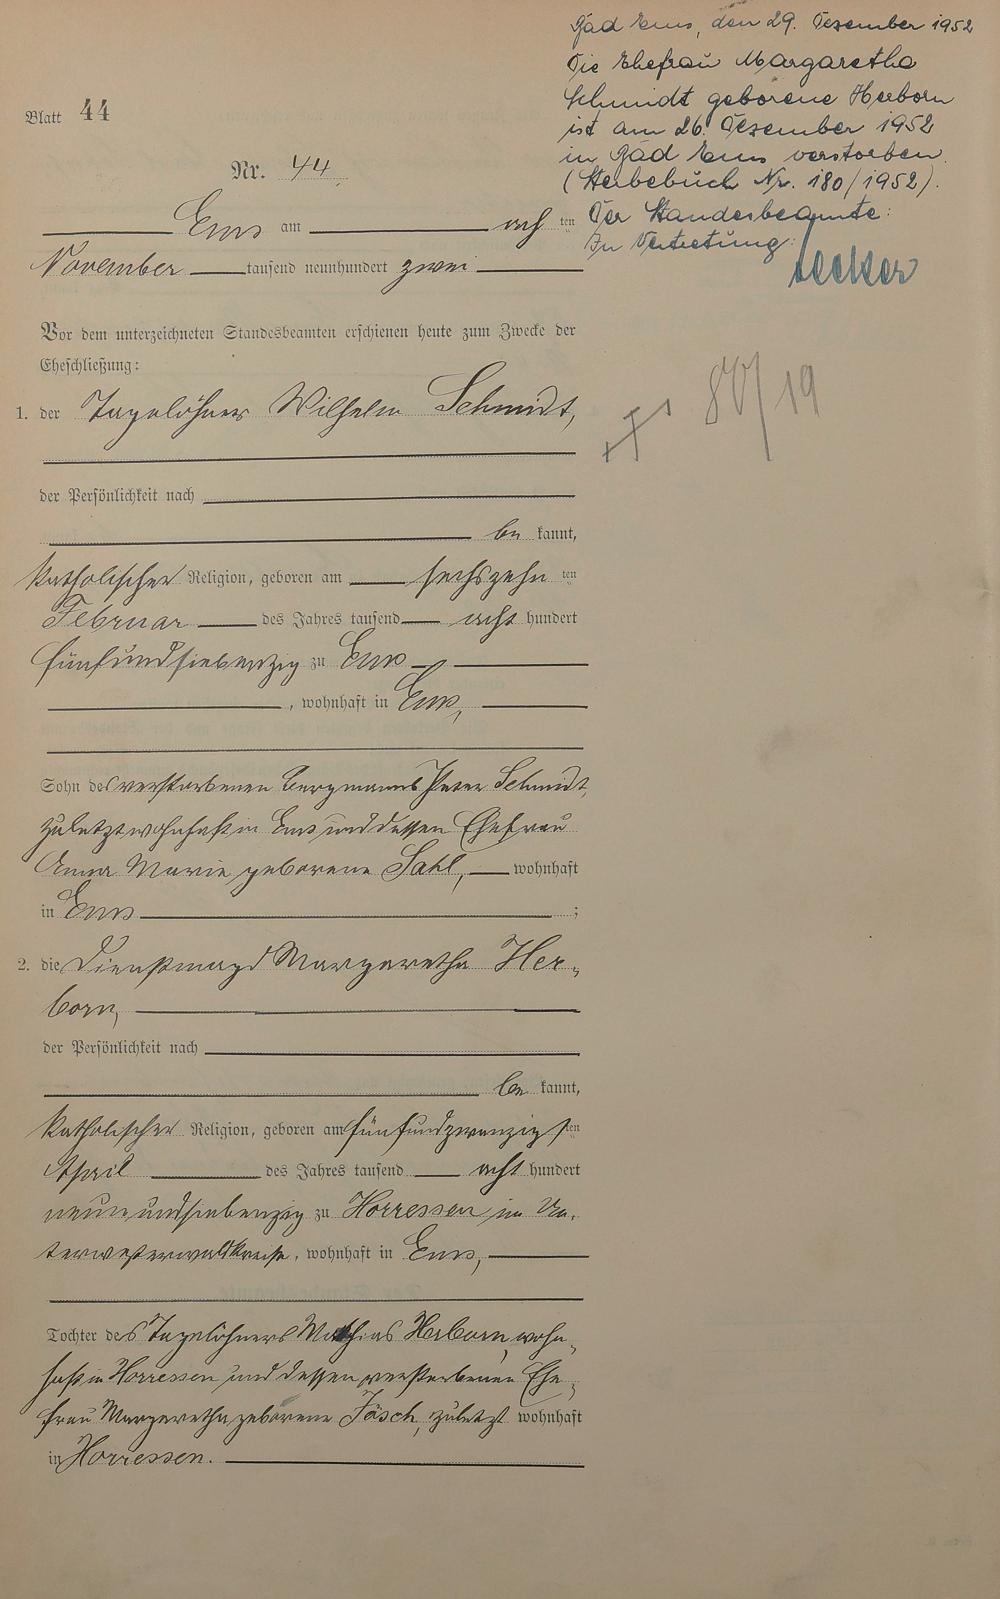 Bad Ems, den 29. Dezember 1952
Die Ehefrau Margaretha
Schmidt geborene Herborn
ist am 26. Dezember 1952
in Bad Ems verstorben.
(Sterbebuch Nr. 180/1952).
Der Standesbeamte:
In Vertretung:
Becker
Blatt 44
Nr. 44.
Ems am ach ten
November tausend neunhundert zwei
Vor dem unterzeichneten Standesbeamten erschienen heute zum Zwecke der
Eheschließung:
1. der Tagelöhner Wilhelm Schmidt,
80/19
der Persönlichkeit nach
be kannt,
katholischer Religion, geboren am sechszehn ten
Februar des Jahres tausend acht hundert
fünfundsiebenzig zu Ems
, wohnhaft in Ems,
Sohn des verstorbenen Bergmanns Peter Schmidt,
zuletzt wohnhaft in Ems und dessen Ehefrau
Anna Marie geborene Sahl, wohnhaft
in Ems ;
2. die Dienstmagd Margaretha Her-
born,
der Persönlichkeit nach
be kannt,
katholischer Religion, geboren am fünfundzwanzigs ten
April des Jahres tausend acht hundert
neunundsiebenzig zu Horressen im Un-
terwesterwaldkreise, wohnhaft in Ems,
Tochter des Tagelöhners Mathias Herborn, wohn-
haft in Horressen und dessen verstorbenen Ehe-
frau Margaretha geborene Jösch, zuletzt wohnhaft
in Horressen.